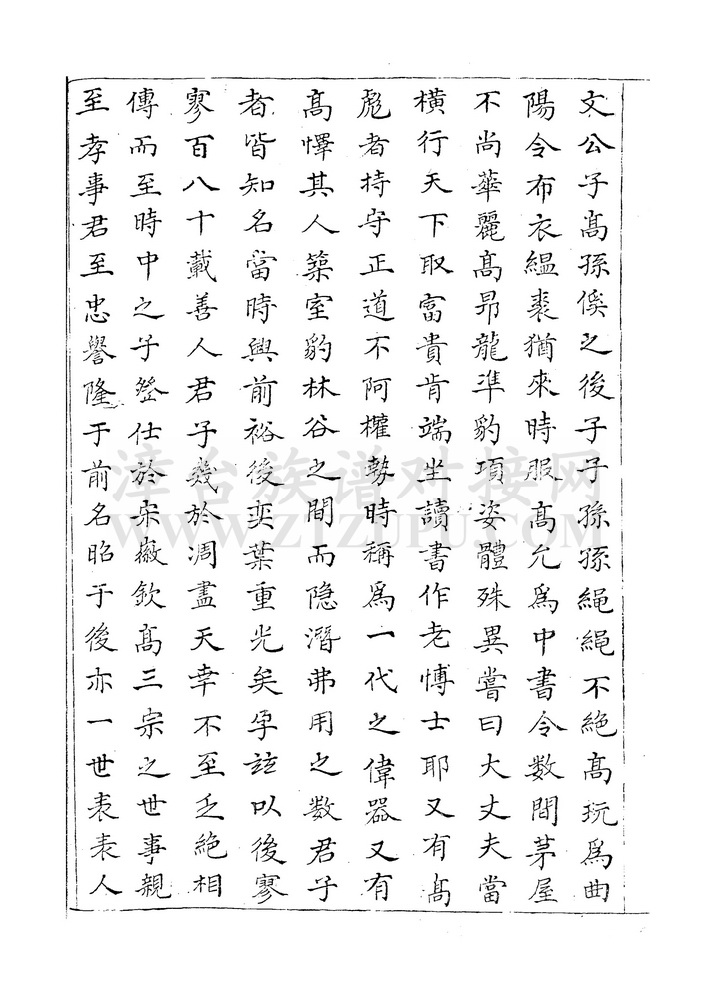 文公子高孫傒之後子子孫孫繩繩不絶高玩爲曲
陽令布衣緼裘猶來時服高允爲中書令数間茅屋
不尚華麗高昂龍準豹項姿體殊異嘗曰大丈夫當
橫行天下取富貴肯端坐讀書作老愽士耶又有高
彪者持守正道不阿權勢時稱爲一代之偉器又有
高懌其人築室豹林谷之間而隐潛弗用之数君子
者皆知名當時與前裕後奕葉重光矣孕玆以後寥
寥百八十載善人君子幾於凋盡天幸不至乏絶相
傳而至時中之子登仕於宋徽欽高三宗之世事親
至孝事君至忠譽隆于前名昭于後亦一世表表人
漳台族谱对接网
WWW.ZTZUPU.COM